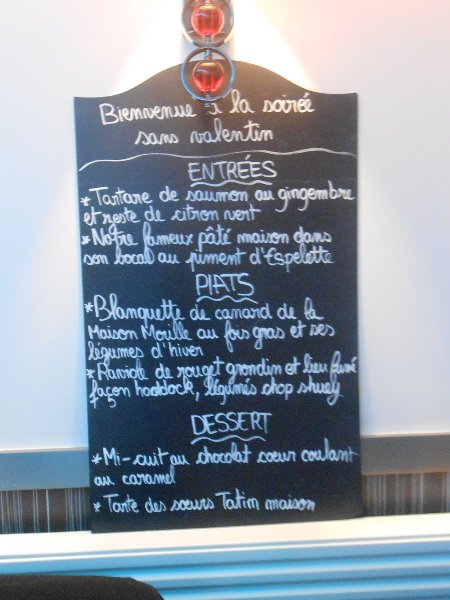 Bienvenue à la soirée
sans valentin
ENTRÉES
* Tartare de saumon au gingembre
et reste de citron vert
* Notre fameux pâté maison dans
son bocal au piment d'Espelette
PLATS
* Blanquette de canard de la
Maison Moulle au fois gras et ses
légumes d'hiver
* Raviole de rouget grondin et lieu fumé
façon haddock, légumes chop shuey
DESSERT
* Mi-cuit au chocolat coeur coulant
au caramel
* Tarte des soeurs Tatim maison